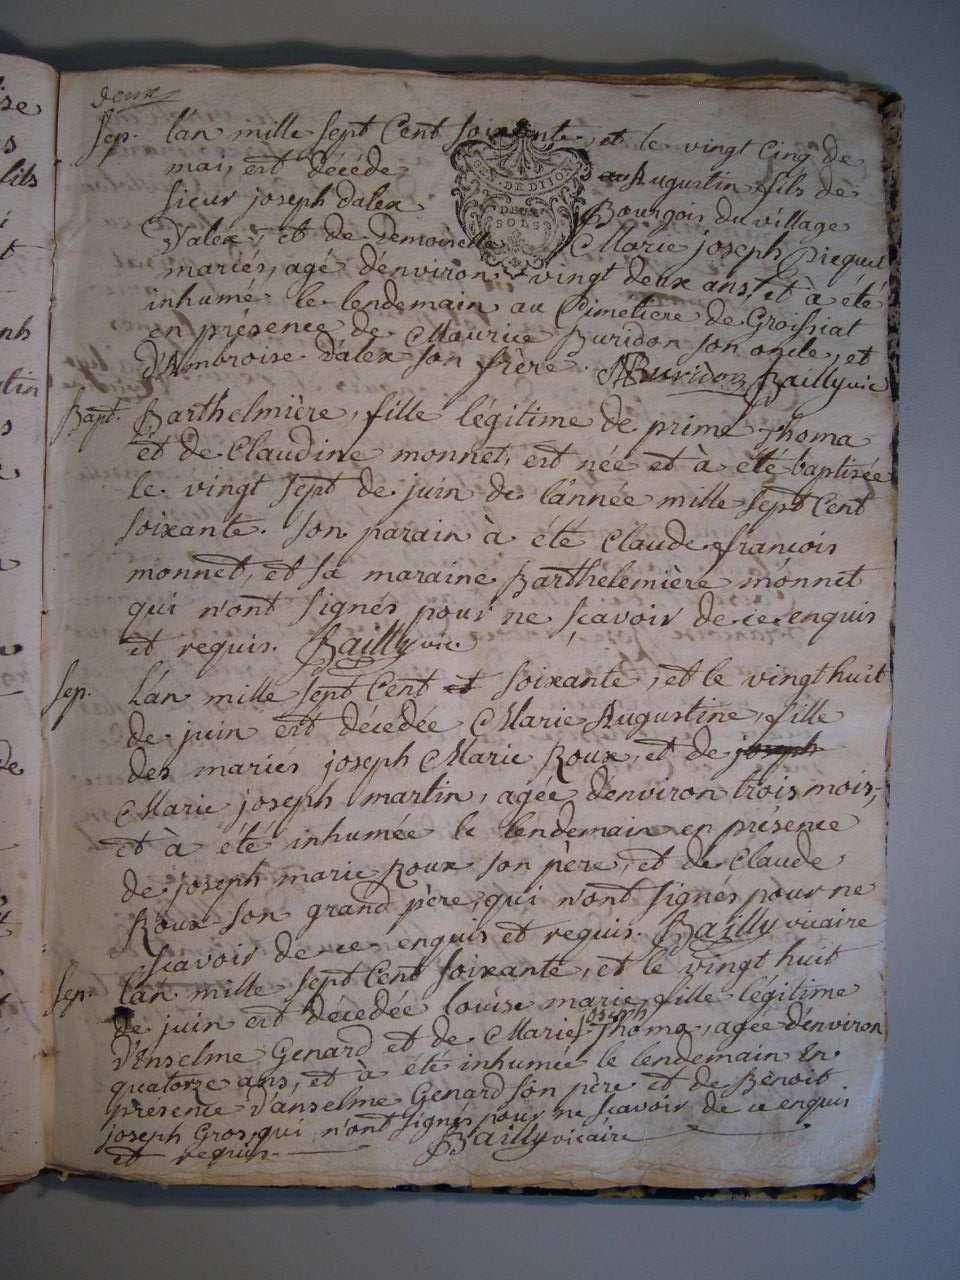 deux
Sep. L'an mille sept cent soixante, et le vingt cinq de
mai, est décédé Augustin fils de
sieur joseph Dalex Bourgois du village
Dalex, et de Demoiselle Marie joseph Picquet
mariés, agé d'environ vingt deux ans, et à été
inhumé le lendemain au Cimetiere de Groissiat
en présence de Maurice Buridon son oncle, et
d'Ambroise Dalex son frère. Buridon Bailly vic
GEN. DE DIJON
DEUX
SOLS
Bapt. Barthelmière, fille légitime de prime Thoma
et de Claudine monnet, est née et à été baptisée
le vingt sept de juin de l'année mille sept cent
soixante. son parain à été Claude françois
monnet, et sa maraine Barthelemière monnet
qui n'ont signés pour ne sçavoir de ce enquis
et requis. Bailly vic.
Sep. L'an mille sept cent et soixante, et le vingt huit
de juin est décédée Marie Augustine, fille
des mariés joseph Marie Roux, et de joseph
Marie joseph martin, agée d'environ trois mois,
et à été inhumée le lendemain en présence
de joseph marie Roux son père, et de Claude
Roux son grand père, qui n'ont signés pour ne
scavoir de ce enquis et requis. Bailly vicaire
Sep. L'an mille sept cent soixante, et le vingt huit
de juin est décédée louise marie, fille légitime
d'Anselme Genard et de Marie joseph Thoma, agée d'environ
quatorze ans, et à été inhumée le lendemain en
présence d'anselme Genard son père et de Benoit
joseph Gros, qui n'ont signés pour ne scavoir de ce enquis
et requis. Bailly vicaire